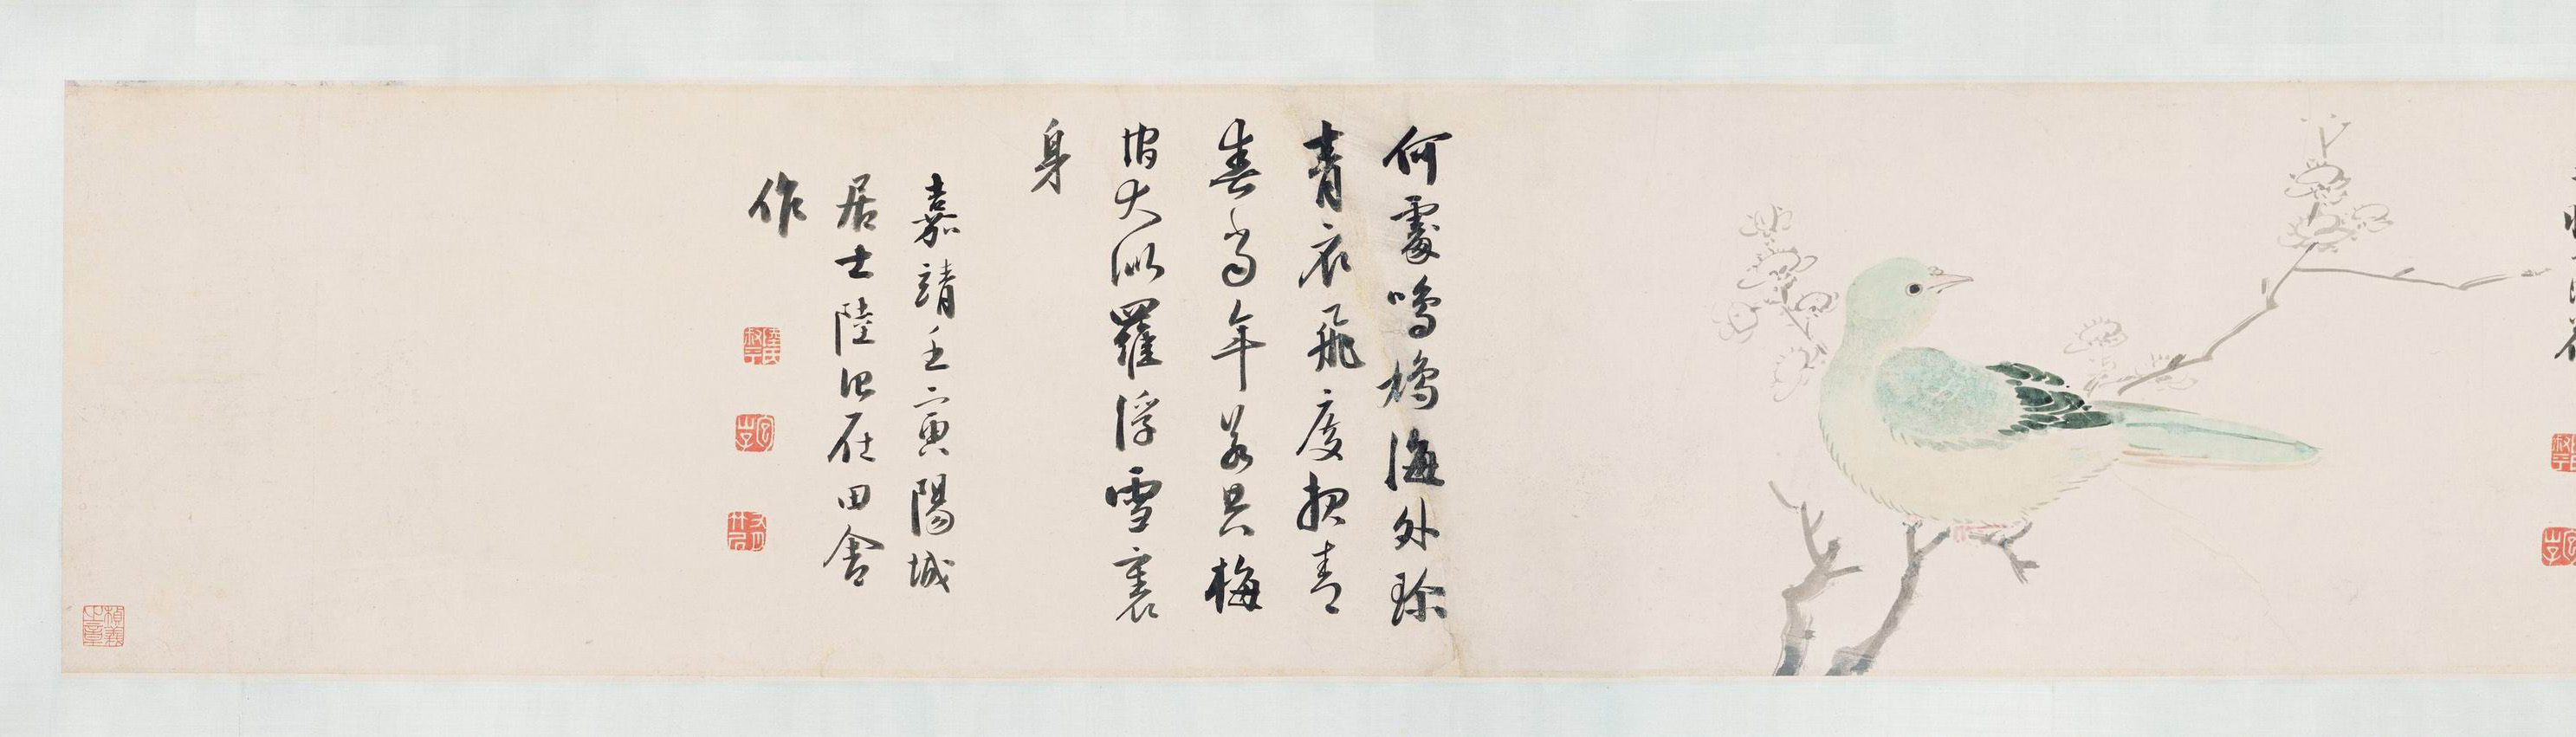 何處鳴鳩海外珍
青衣飛度報青
春當年若只梅
梢大似羅浮雪裏
身
嘉靖壬寅陽城
居士陸治在田舍
作